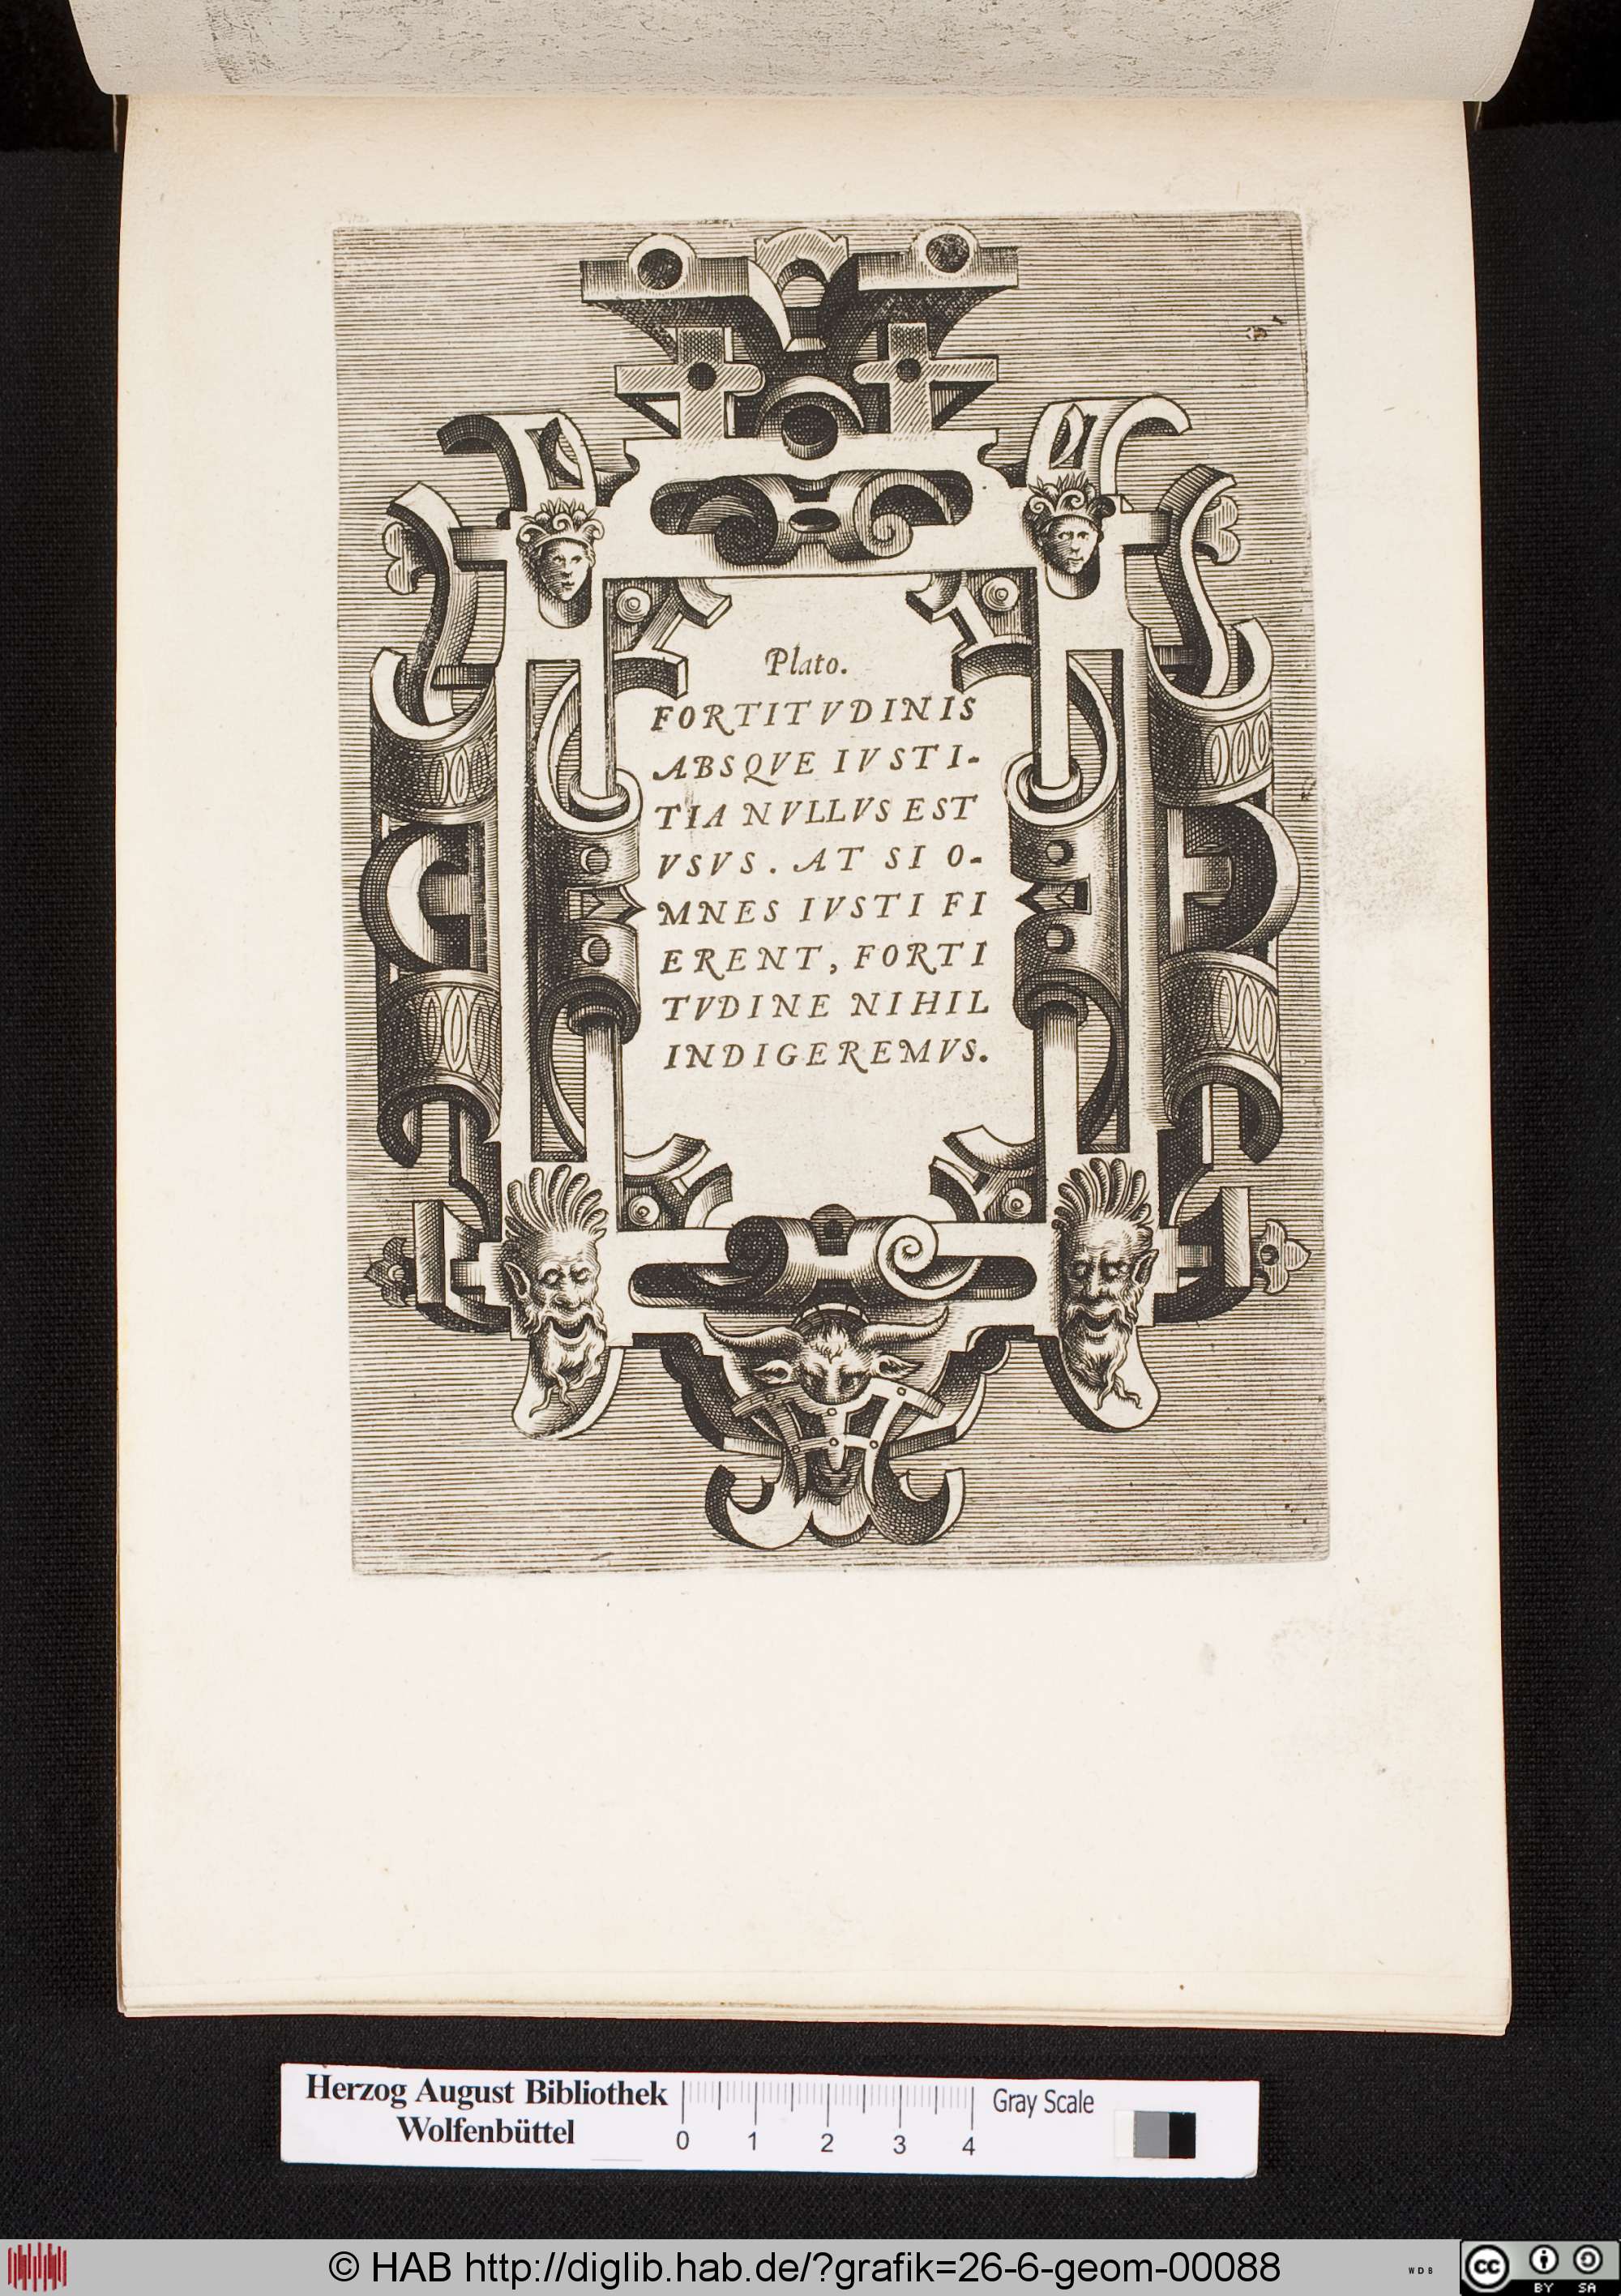 Plato.
FORTITVDINIS
ABSQVE IVSTI-
TIA NVLLVS EST
VSVS. AT SI O-
MNES IVSTI FI
ERENT, FORTI
TVDINE NIHIL
INDIGEREMVS.
Herzog August Bibliothek
Wolfenbüttel
0 1 2 3 4
Gray Scale
© HAB http://diglib.hab.de/?grafik=26-6-geom-00088
WDB
cc BY SA